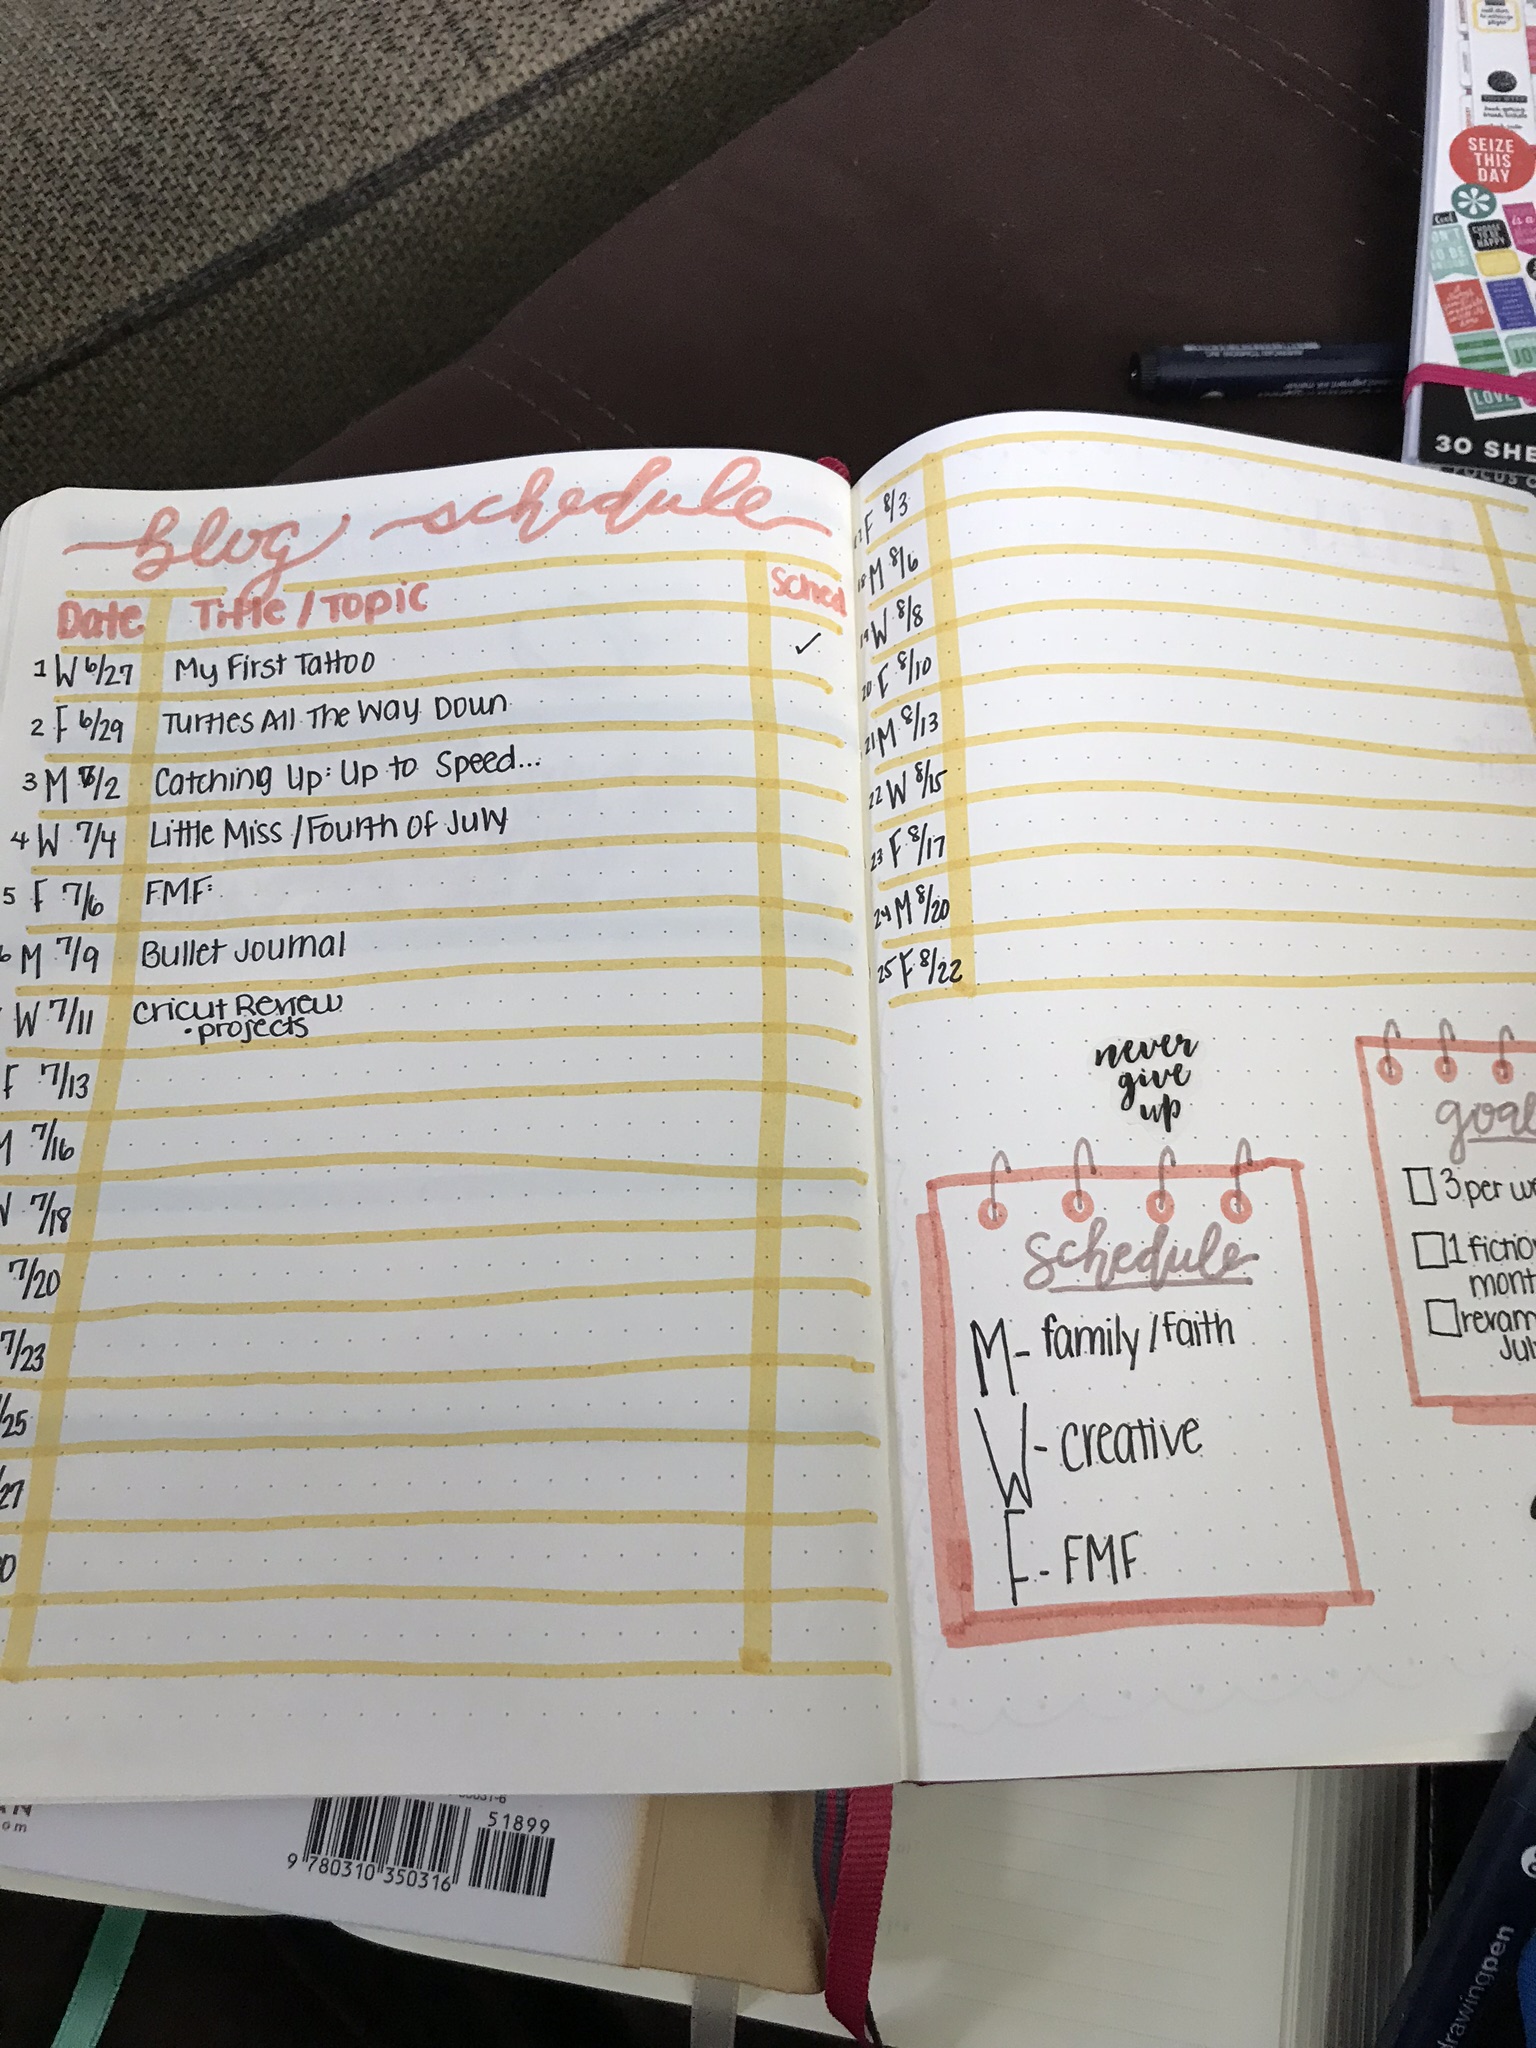 blog schedule
Date Title/Topic Sched
1 W 6/27 My First Tattoo ✓
2 F 6/29 Turtles All The Way Down
3 M 7/2 Catching Up: Up to Speed...
4 W 7/4 Little Miss/Fourth of July
5 F 7/6 FMF:
6 M 7/9 Bullet Journal
W 7/11 Cricut Review
• projects
F 7/13
M 7/16
W 7/18
7/20
7/23
/25
/27
0
F 8/3
18 M 8/6
19 W 8/8
20 F 8/10
21 M 8/13
22 W 8/15
23 F 8/17
24 M 8/20
25 F 8/22
never
give
up
schedule
M- family/Faith
W- creative
F- FMF
goal
3 per we
1 fictio
mont
revam
Jul
SEIZE
THIS
DAY
CHOOSE
TO BE
HAPPY
LOVE
30 SHE
51899
9 780310 350316
drawingpen